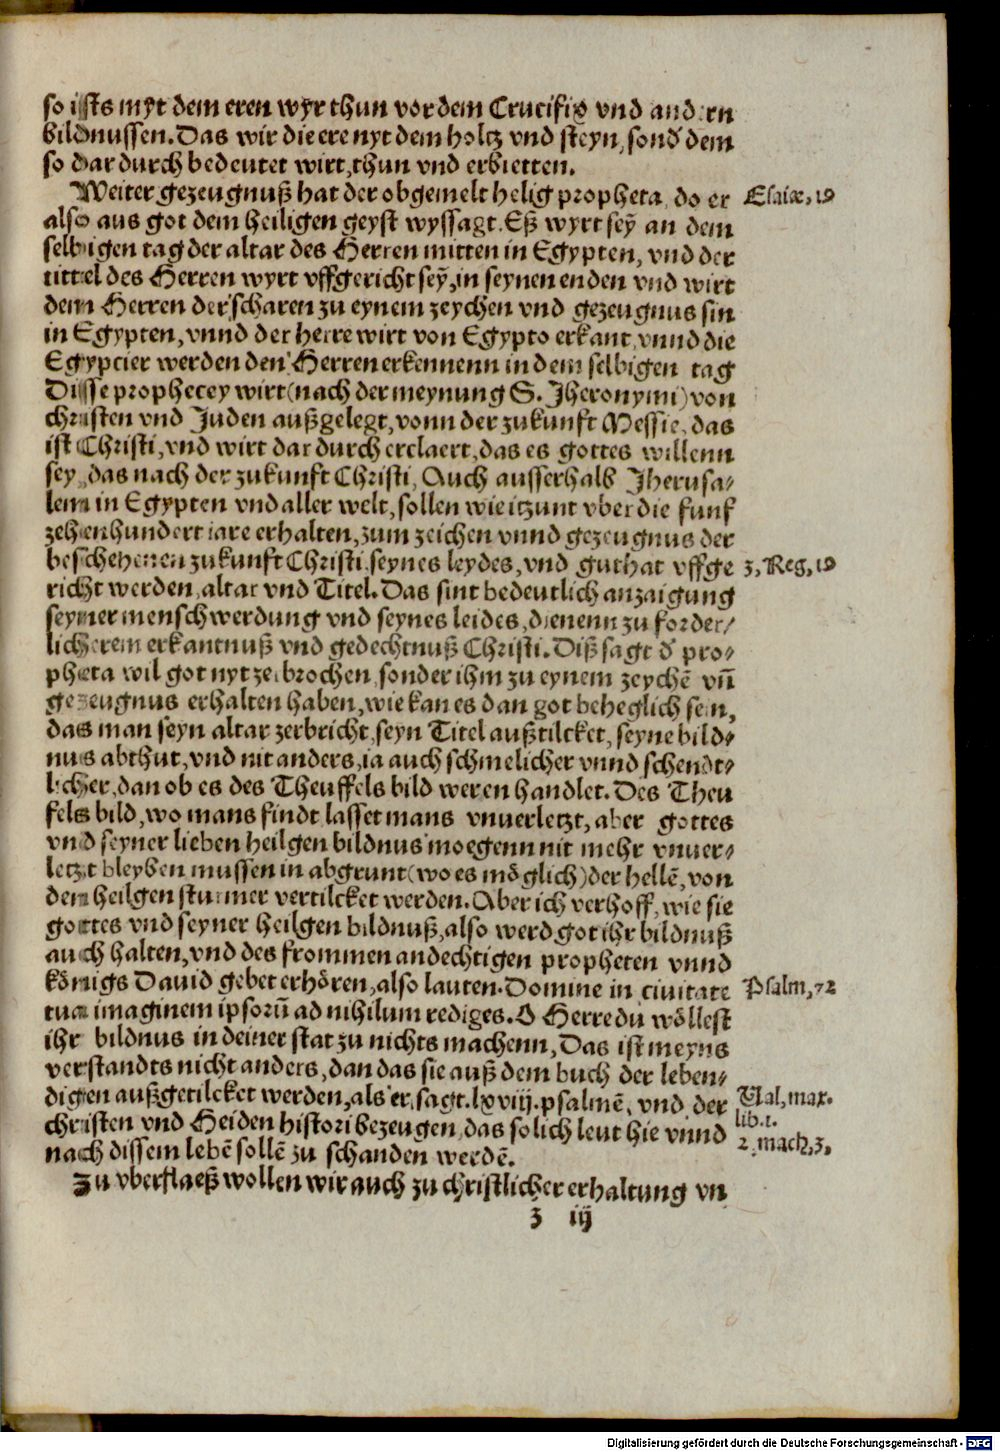 so ists myt dem eren wyr thun vor dem Crucifix vnd andern
bildnussen. Das wir die ere nyt dem holtz vnd steyn, sond' dem
so dar durch bedeutet wirt, thun vnd erbietten.
Weiter gezeugnuß hat der obgemelt helig propheta, do er
Esaiæ, 19
also aus got dem heiligen geyst wyssagt. Eß wyrt seȳ an dem
selbigen tag der altar des Herren mitten in Egypten, vnd der
tittel des Herren wyrt vffgericht seȳ, in seynen enden vnd wirt
dem Herren der scharen zu eynem zeychen vnd gezeugnus sin
in Egypten, vnnd der herre wirt von Egypto erkant, vnnd die
Egyptier werden den Herren erkennenn in dem selbigen tag
Disse prophecey wirt (nach der meynung S. Jheronymi) von
christen vnd Juden außgelegt, vonn der zukunft Messie, das
ist Christi, vnd wirt dar durch erclaert, das es gottes willenn
sey, das nach der zukunft Christi, Auch ausserhalb Jherusa-
lem in Egypten vnd aller welt, sollen wie itzunt vber die funf
zehenhundert iare erhalten, zum zeichen vnnd gezeugnus der
beschehenen zukunft Christi, seynes leydes, vnd guthat vffge
3, Reg, 19
richt werden, altar vnd Titel. Das sint bedeutlich anzaigung
seyner menschwerdung vnd seynes leides, dienenn zu forder-
licherem erkantnuß vnd gedechtnuß Christi. Diß sagt d' pro-
pheta wil got nyt zerbrochen, sonder ihm zu eynem zeychē vn̄
gezeugnus erhalten haben, wie kan es dan got beheglich sein,
das man seyn altar zerbricht, seyn Titel außtilcket, seyne bild-
nus abthut, vnd nit anders, ia auch schmelicher vnnd schendt-
licher, dan ob es des Theuffels bild weren handlet. Des Theu
fels bild, wo mans findt lasset mans vnuerletzt, aber gottes
vnd seyner lieben heilgen bildnus moegenn nit mehr vnuer-
letzt bleyben mussen in abgrunt (wo es möglich) der hellē, von
den heilgen sturmer vertilcket werden. Aber ich verhoff, wie sie
gottes vnd seyner heilgen bildnuß, also werd got ihr bildnuß
auch halten, vnd des frommen andechtigen propheten vnnd
königs David gebet erhören, also lauten. Domine in civitate
Psalm, 72
tua imaginem ipsorū ad nihilum rediges. O Herre du wöllest
ihr bildnus in deiner stat zu nichts machenn, Das ist meyns
verstandts nicht anders, dan das sie auß dem buch der leben-
digen außgetilcket werden, als er, sagt. lxviij. psalmē, vnd der
Val, max.
lib. 1.
christen vnd Heiden histori bezeugen, das solich leut hie vnnd
2. mach, 3,
nach dissem lebē sollē zu schanden werdē.
Zu vberflaeß wollen wir auch zu christlicher erhaltung vn
z iij
Digitalisierung gefördert durch die Deutsche Forschungsgemeinschaft - DFG